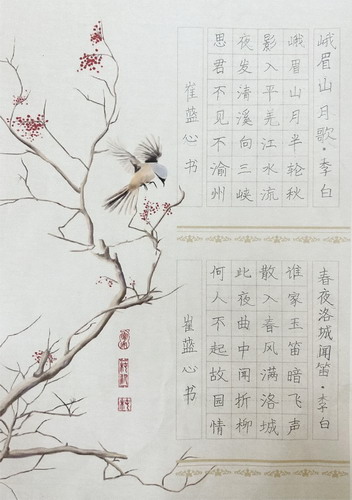 峨眉山月歌·李白
峨眉山月半轮秋
影入平羌江水流
夜发清溪向三峡
思君不见不渝州
崔蓝心书
春夜洛城闻笛·李白
谁家玉笛暗飞声
散入春风满洛城
此夜曲中闻折柳
何人不起故园情
崔蓝心书